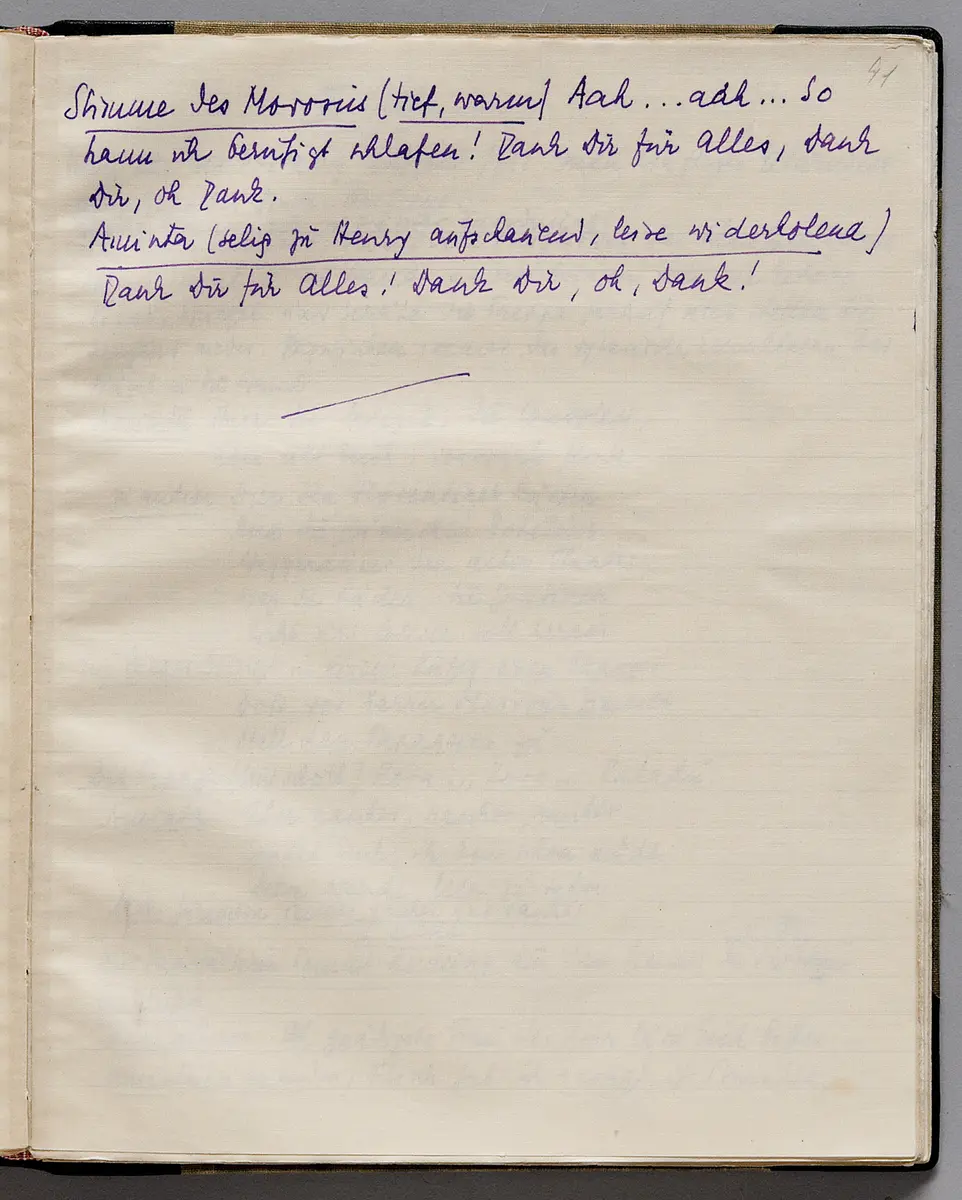 41
Stimme des Morosus (tief, warm) Aah ... aah ... So
kann ich beruhigt schlafen! Dank Dir für Alles, Dank
Dir, oh Dank.
Aminta (selig zu Henry aufschauend, leise widerholend)
Dank Dir für Alles! Dank Dir, oh, Dank!